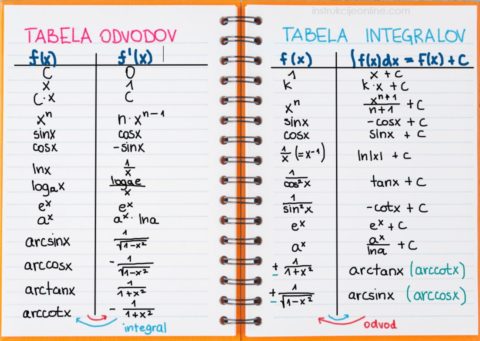 instrukcijeonline.com
TABELA ODVODOV
f(x) f'(x)
C 0
x 1
C·x C
xⁿ n·xⁿ⁻¹
sinx cosx
cosx -sinx
lnx 1/x
logₐx logₐe/x
eˣ eˣ
aˣ aˣ·lna
arcsinx 1/√(1-x²)
arccosx -1/√(1-x²)
arctanx 1/(1+x²)
arccotx -1/(1+x²)
integral
TABELA INTEGRALOV
f(x) ∫f(x)dx = F(x) + C
1 x + C
k k·x + C
xⁿ xⁿ⁺¹/(n+1) + C
sinx -cosx + C
cosx sinx + C
1/x (=x⁻¹) ln|x| + C
1/cos²x tanx + C
1/sin²x -cotx + C
eˣ eˣ + C
aˣ aˣ/lna + C
± 1/(1+x²) arctanx (arccotx)
± 1/√(1-x²) arcsinx (arccosx)
odvod